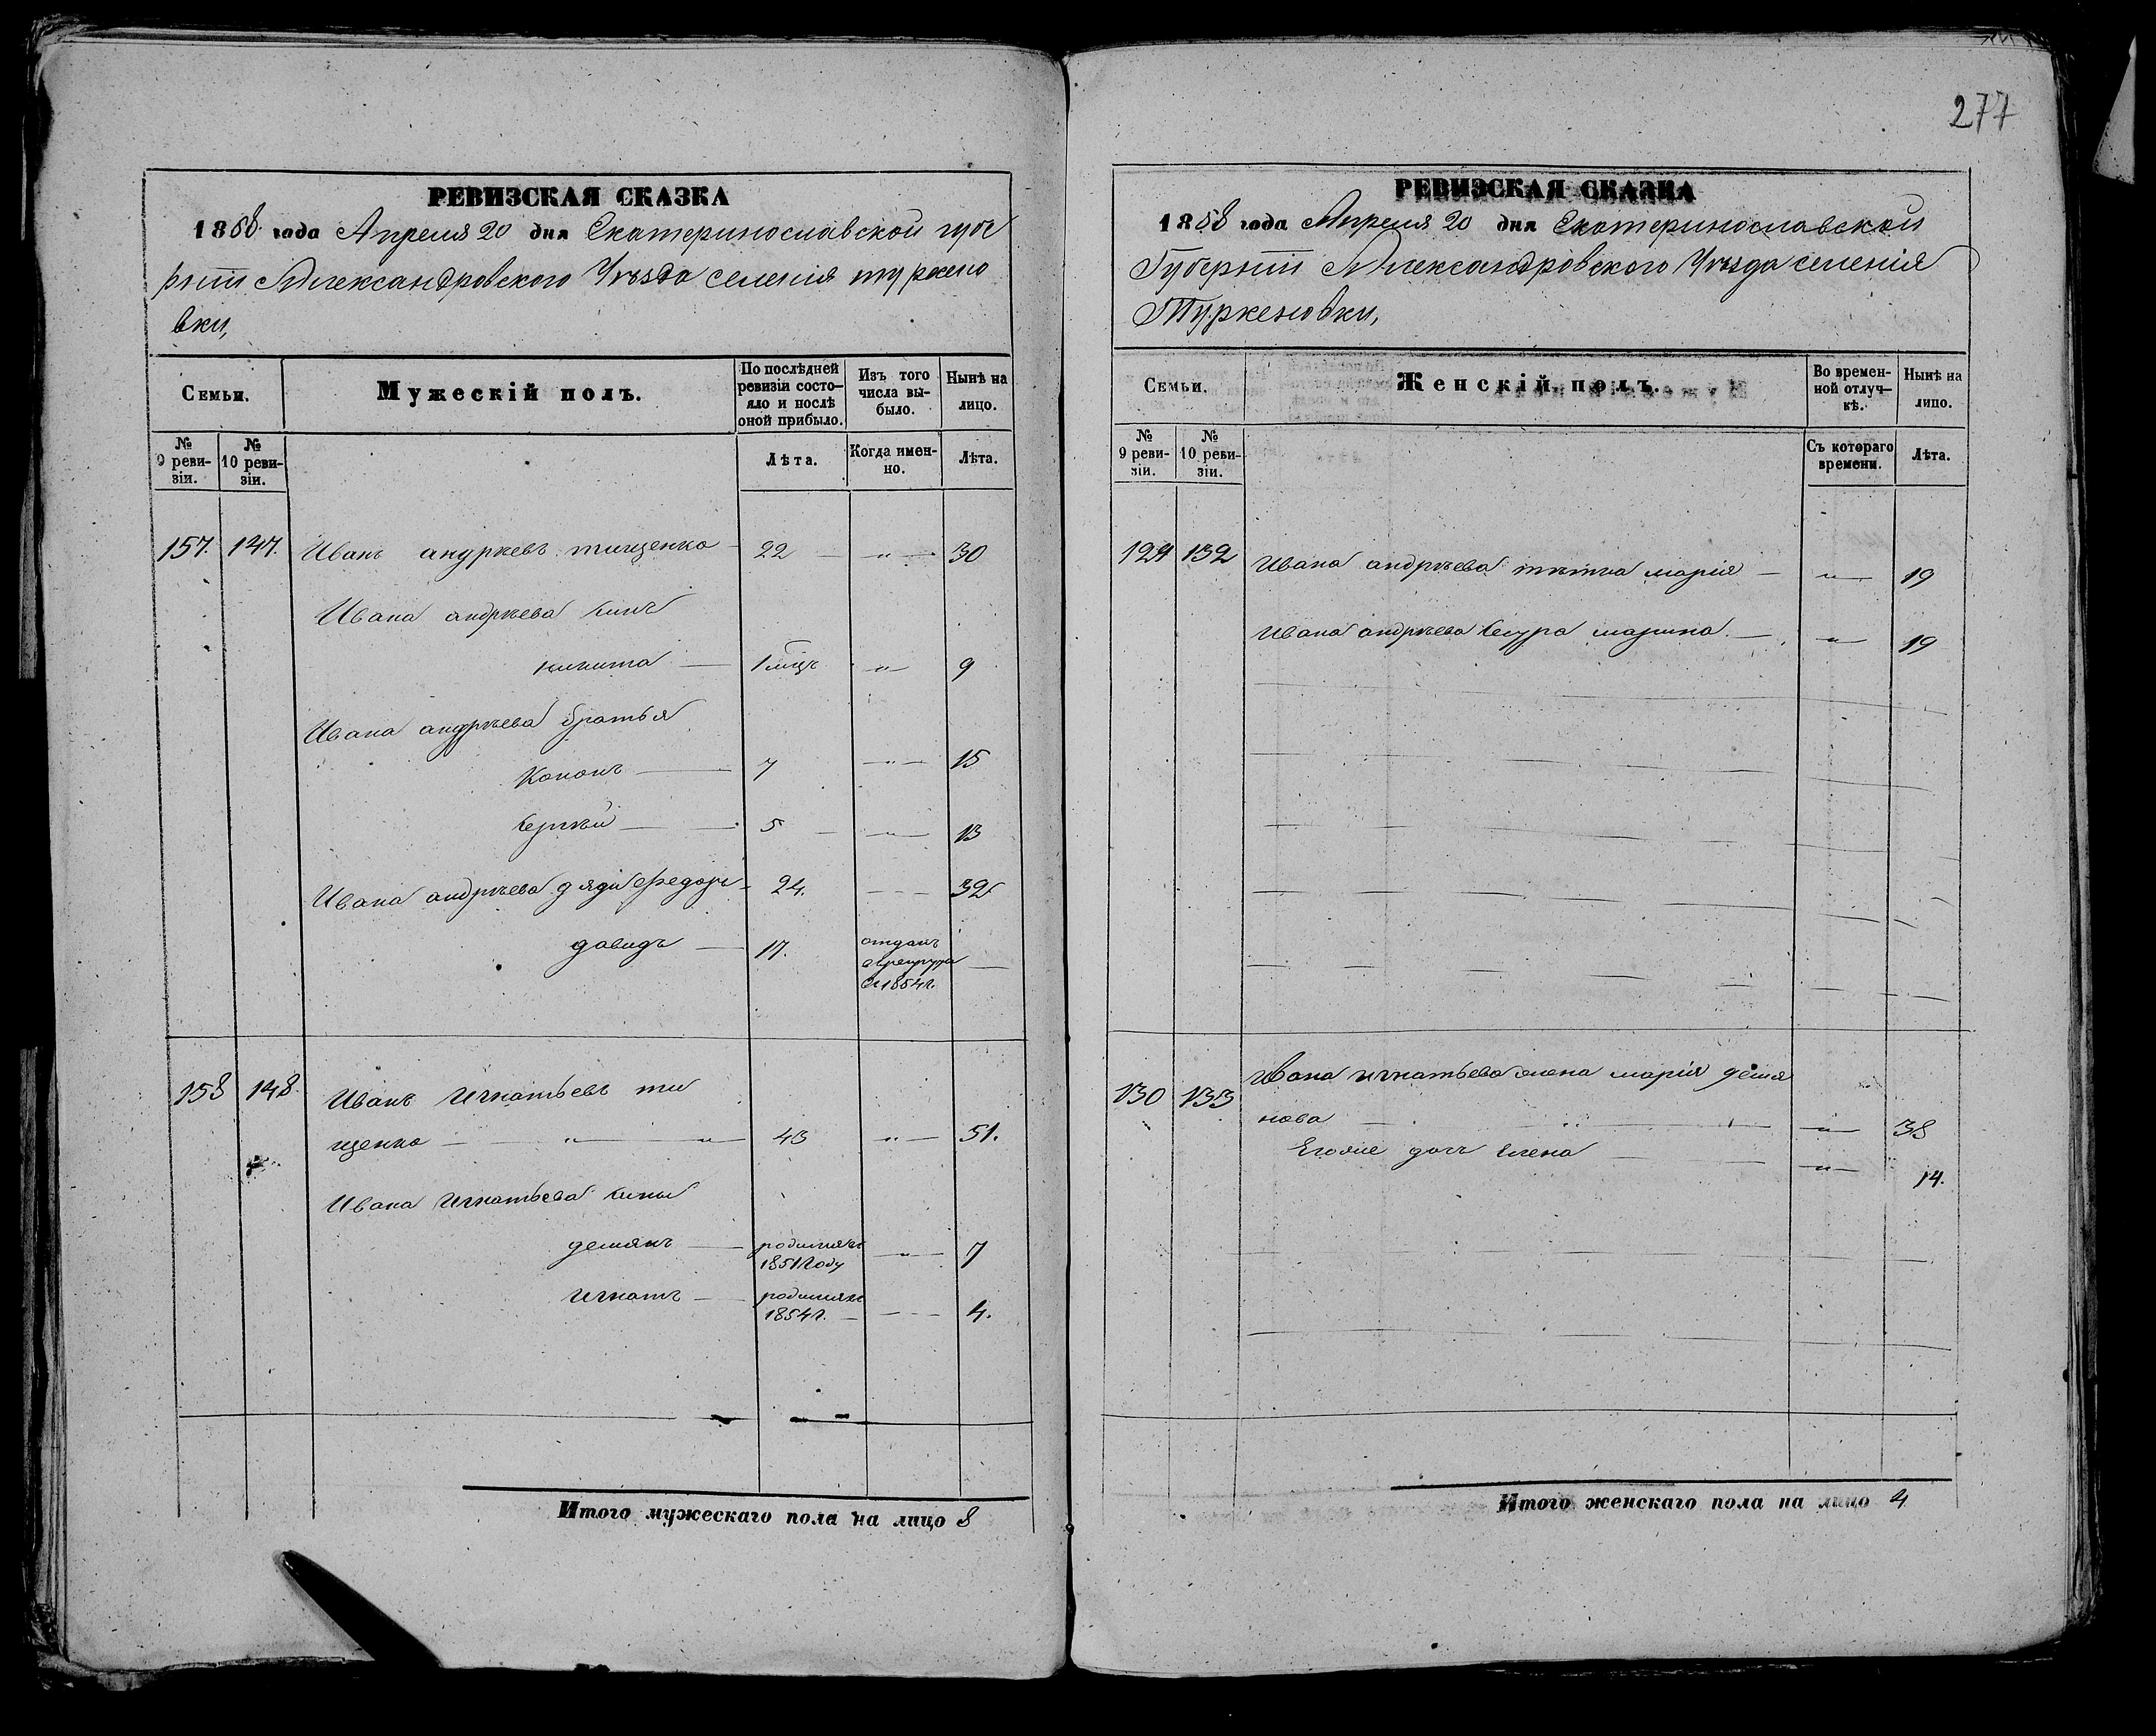 277
РЕВИЗСКАЯ СКАЗКА
1858 года Апреля 20 дня Екатеринославской губе
рніи Александровского Уѣзда селенія туркено
вки,
Семьи.
Мужескій полъ.
По послѣдней ревизіи состо-
яло и послѣ оной прибыло.
Изъ того числа вы-
было.
Нынѣ на лицо.
№ 9 реви-
зіи.
№ 10 реви-
зіи.
Лѣта.
Когда имен-
но.
Лѣта.
157. 147. Иванъ андрѣевъ тищенко — 22 — " — 30
Ивана андрѣева синъ
никита — 1 мцъ " — 9
Ивана андрѣева братья
Кононъ — 7 — " — 15
Сергѣй — 5 — — " — 13
Ивана андрѣева дяди федоръ — 24. — - — 32
давидъ — 17. отданъ
1854г. —
158 148. Иванъ Игнатьевъ ти
щенко — " — " — 43 " — 51.
Ивана Игнатьева сины
демянъ — родился
1851 году — " — 7
Игнатъ — родился
1854г. — — - — 4.
Итого мужескаго пола на лицо 8
РЕВИЗСКАЯ СКАЗКА
1858 года Апреля 20 дня Екатеринославской
Губерніи Александровского Уѣзда селенія
Туркеновки,
Семьи.
Женскій полъ.
Во времен-
ной отлуч-
кѣ.
Нынѣ на лицо.
№ 9 реви-
зіи.
№ 10 реви-
зіи.
Съ котораго времени.
Лѣта.
129 132 Ивана андрѣева тѣтка марія — " — 19
Ивана андрѣева сестра марина. — " — 19
130 133 Ивана игнатьева жена марія демя
нова — " — " — 38
Егоже дочь Елена — " — 14.
Итого женскаго пола на лицо 4